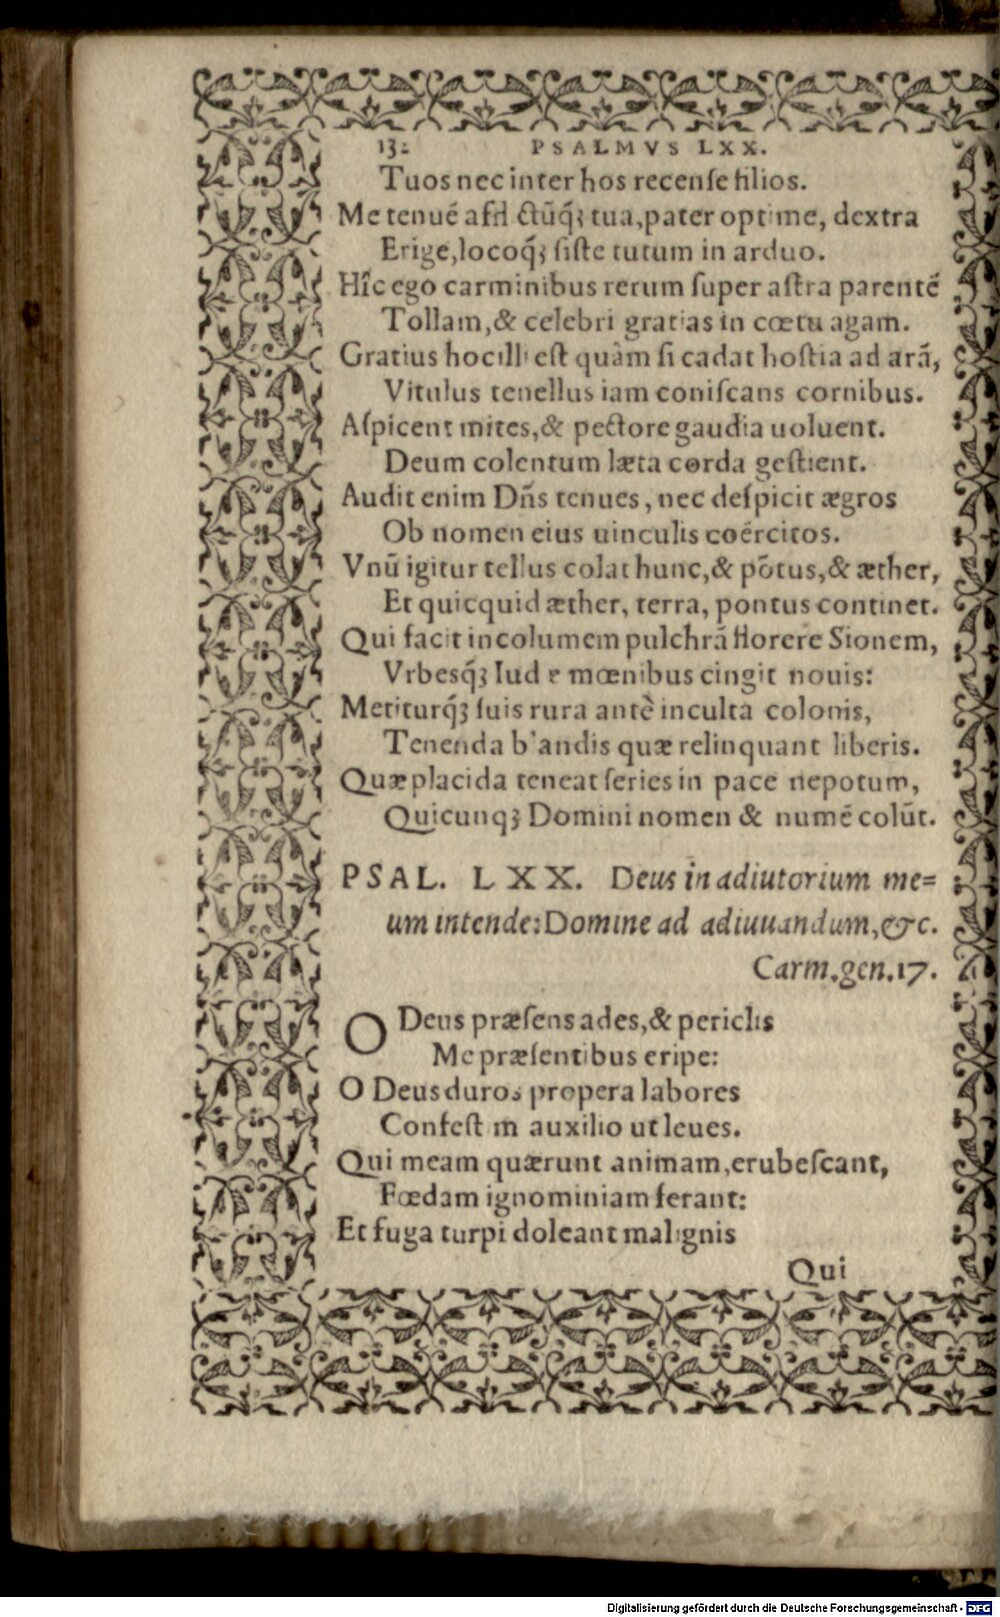 13: PSALMVS LXX.
Tuos nec inter hos recenſe filios.
Me tenuē afflictūq́ꝫ tua, pater optime, dextra
Erige, locoq́ꝫ ſiſte tutum in arduo.
Hîc ego carminibus rerum ſuper aſtra parentē
Tollam, & celebri gratias in cœtu agam.
Gratius hoc illi eſt quàm ſi cadat hoſtia ad arā,
Vitulus tenellus iam coniſcans cornibus.
Aſpicent mites, & pectore gaudia uoluent.
Deum colentum læta corda geſtient.
Audit enim Dñs tenues, nec deſpicit ægros
Ob nomen eius uinculis coércitos.
Vnū igitur tellus colat hunc, & pōtus, & æther,
Et quicquid æther, terra, pontus continet.
Qui facit incolumem pulchrā florere Sionem,
Vrbesq́ꝫ Iudæ mœnibus cingit nouis:
Metiturq́ꝫ ſuis rura antè inculta colonis,
Tenenda blandis quæ relinquant liberis.
Quæ placida teneat ſeries in pace nepotum,
Quicunqꝫ Domini nomen & numē colūt.
PSAL. LXX. Deus in adiutorium me=
um intende: Domine ad adiuuandum, &c.
Carm. gen. 17.
O Deus præſens ades, & periclis
Me præſentibus eripe:
O Deus duros propera labores
Confeſtim auxilio ut leues.
Qui meam quærunt animam, erubeſcant,
Fœdam ignominiam ferant:
Et fuga turpi doleant malignis
Qui
Digitalisierung gefördert durch die Deutsche Forschungsgemeinschaft - DFG